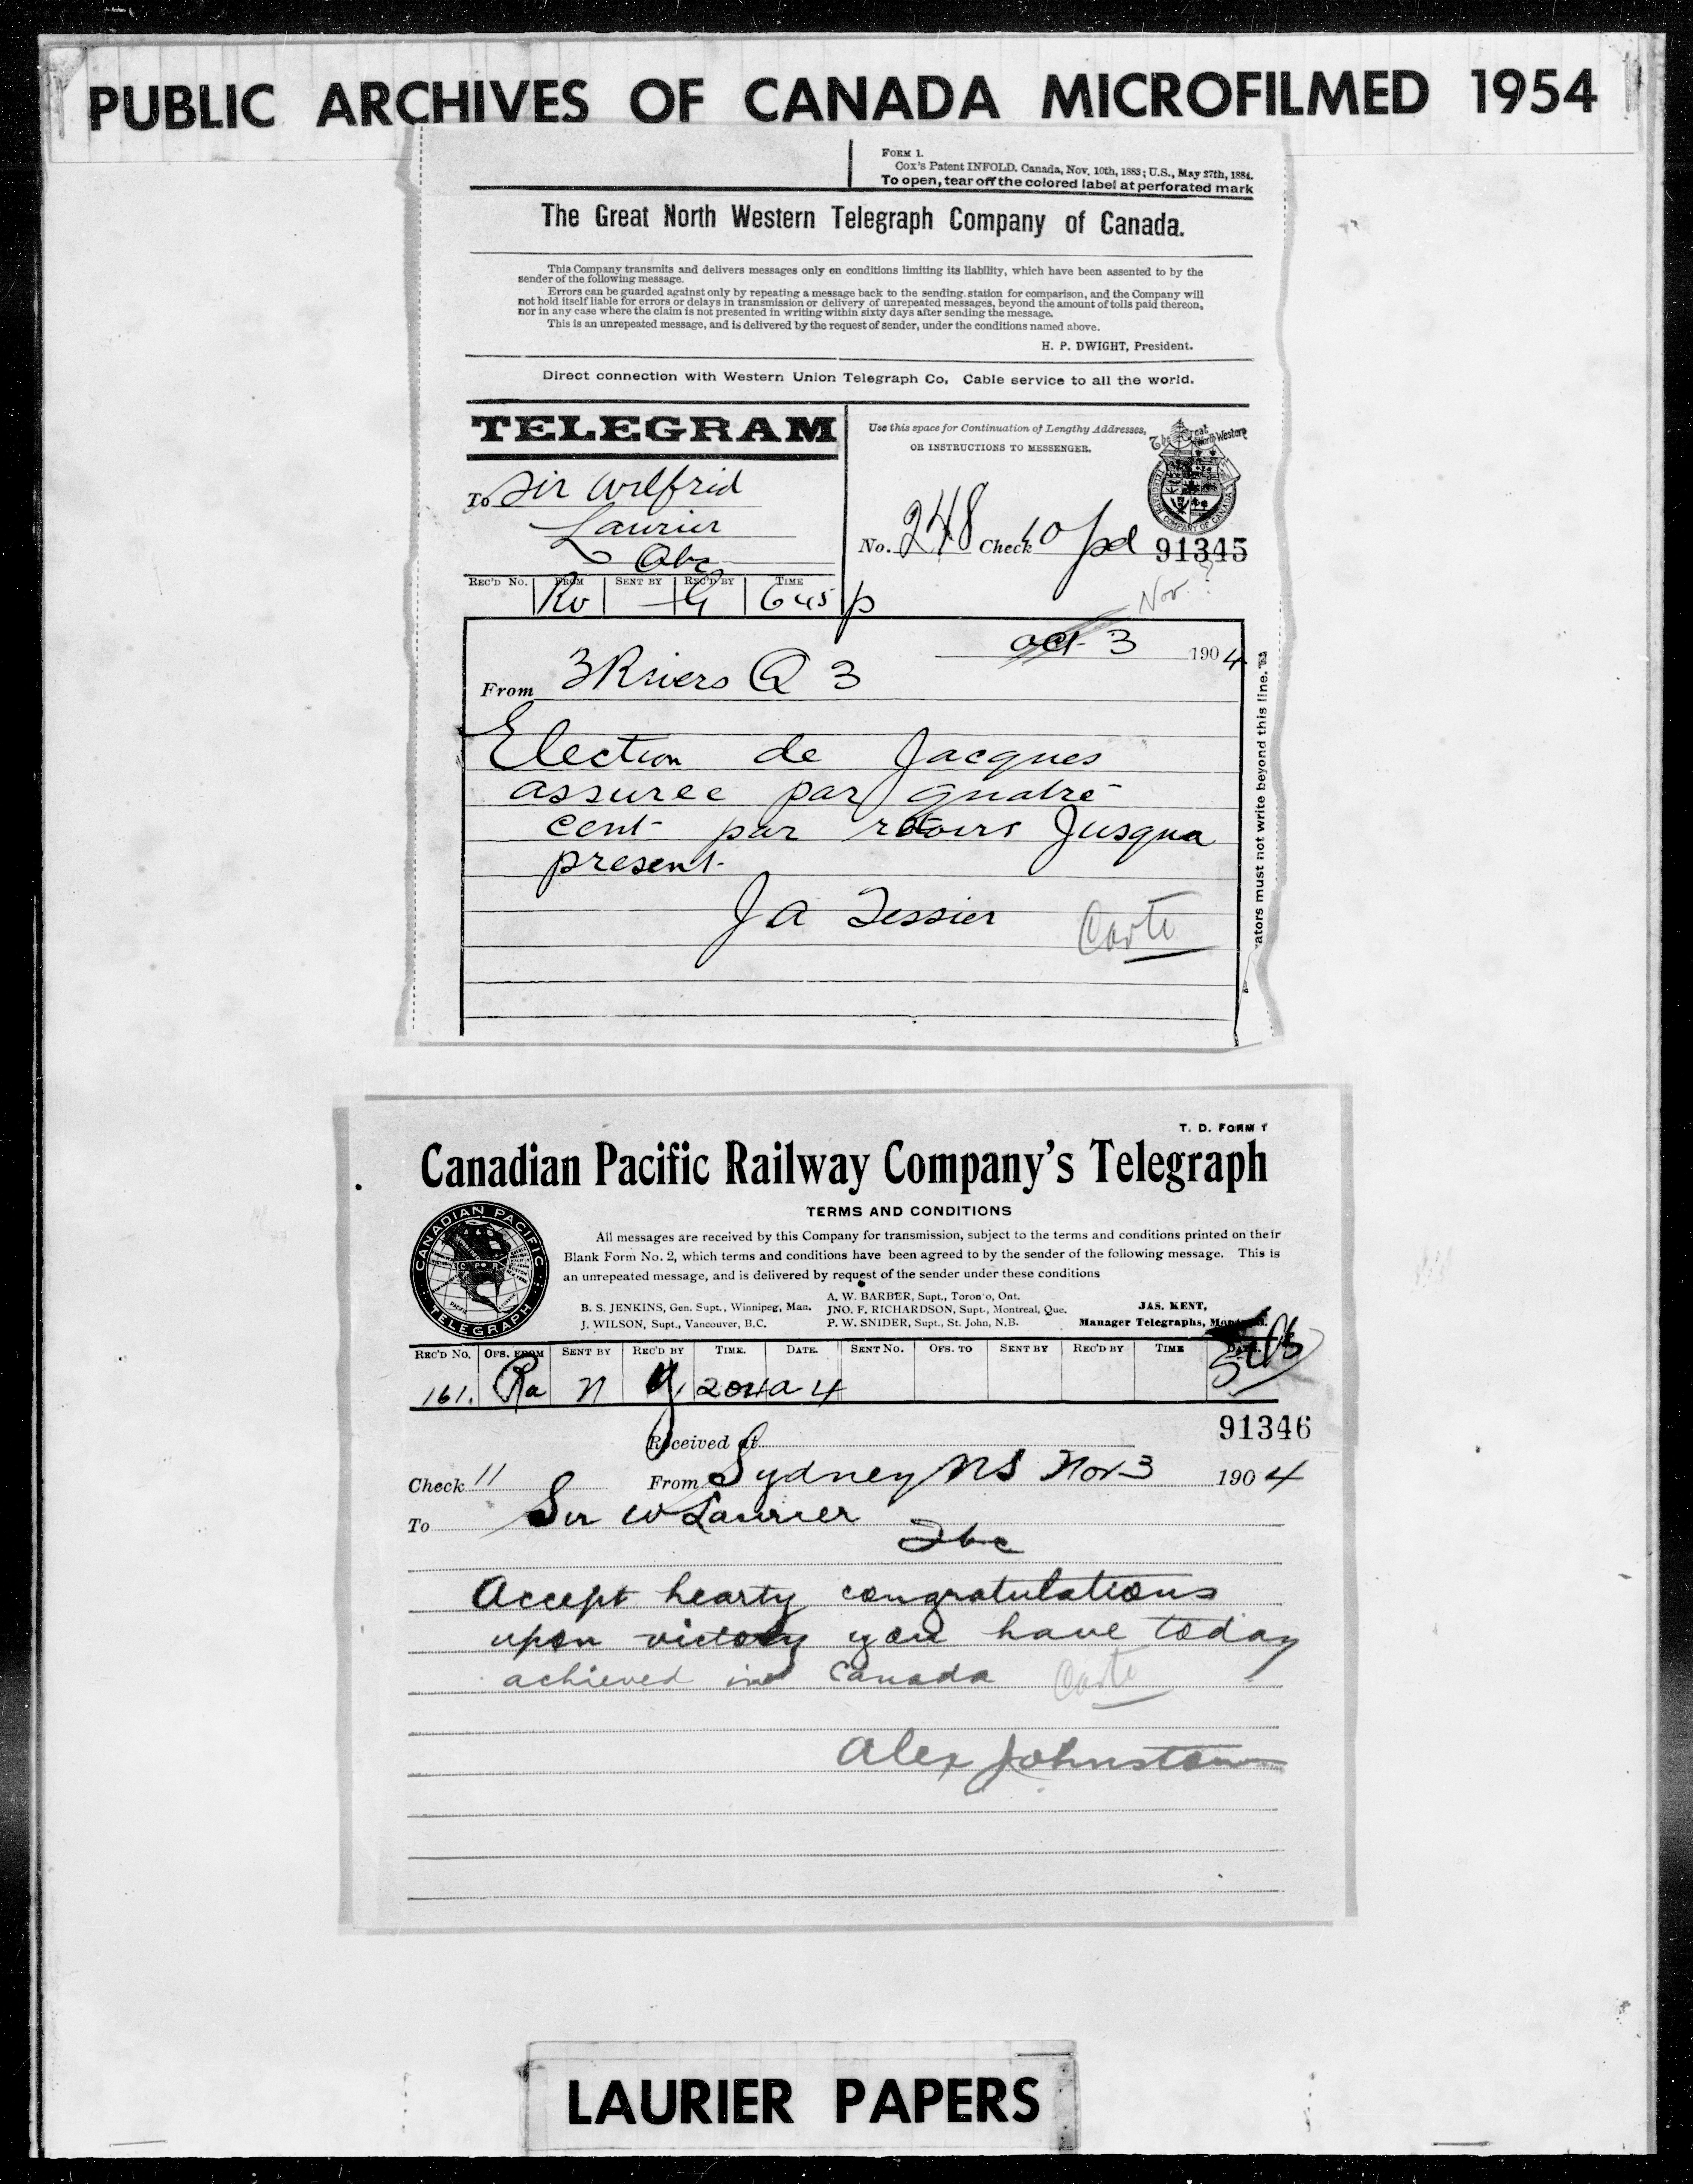 PUBLIC ARCHIVES OF CANADA MICROFILMED 1954
FORM 1.
Cox's Patent INFOLD. Canada, Nov. 10th, 1883; U.S., May 27th, 1884.
To open, tear off the colored label at perforated mark
The Great North Western Telegraph Company of Canada.
This Company transmits and delivers messages only on conditions limiting its liability, which have been assented to by the
sender of the following message.
Errors can be guarded against only by repeating a message back to the sending station for comparison, and the Company will
not hold itself liable for errors or delays in transmission or delivery of unrepeated messages, beyond the amount of tolls paid thereon,
nor in any case where the claim is not presented in writing within sixty days after sending the message.
This is an unrepeated message, and is delivered by the request of sender, under the conditions named above.
H. P. DWIGHT, President.
Direct connection with Western Union Telegraph Co. Cable service to all the world.
TELEGRAM
Use this space for Continuation of Lengthy Addresses,
OR INSTRUCTIONS TO MESSENGER.
The Great North Western
TELEGRAPH COMPANY OF CANADA
To Sir Wilfrid
Laurier
Qbc
No. 248 Check 10 pd 91345
REC'D No. FROM SENT BY REC'D BY TIME
645 p
Nov. ?
oct 3 1904
From 3 Rivers Q 3
Election de Jacques
assuree par quatre
cent par retours Jusqua
present
J A Tessier
ators must not write beyond this line.
T. D. FORM 1
Canadian Pacific Railway Company's Telegraph
CANADIAN PACIFIC TELEGRAPH
TERMS AND CONDITIONS
All messages are received by this Company for transmission, subject to the terms and conditions printed on their
Blank Form No. 2, which terms and conditions have been agreed to by the sender of the following message. This is
an unrepeated message, and is delivered by request of the sender under these conditions
A. W. BARBER, Supt., Toronto, Ont.
B. S. JENKINS, Gen. Supt., Winnipeg, Man. JNO. F. RICHARDSON, Supt., Montreal, Que. JAS. KENT,
J. WILSON, Supt., Vancouver, B.C. P. W. SNIDER, Supt., St. John, N.B. Manager Telegraphs, Montreal.
REC'D No. OFS. FROM SENT BY REC'D BY TIME. DATE. SENT No. OFS. TO SENT BY REC'D BY TIME DATE.
161. Ra n 204a 4
91346
Received at
Check 11 From Sydney NS Nov 3 1904
To Sir W Laurier
Qbc
Accept hearty congratulations
upon victory you have today
achieved in Canada
Alex Johnston
LAURIER PAPERS